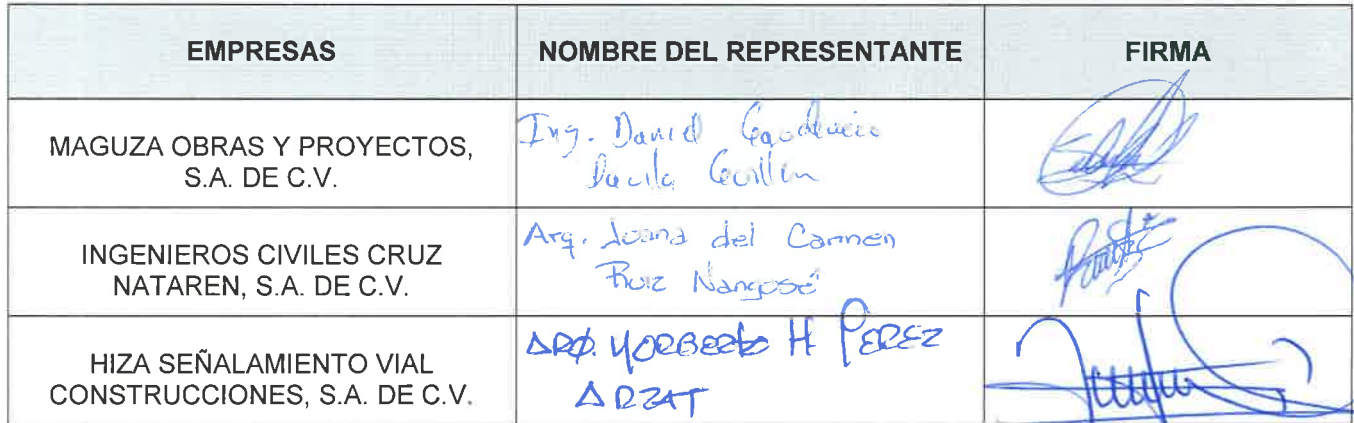 EMPRESAS
NOMBRE DEL REPRESENTANTE
FIRMA
MAGUZA OBRAS Y PROYECTOS,
S.A. DE C.V.
Ing. Daniel
Guillen
INGENIEROS CIVILES CRUZ
NATAREN, S.A. DE C.V.
Arq. Joana del Carmen
Ruiz Nangosé
HIZA SEÑALAMIENTO VIAL
CONSTRUCCIONES, S.A. DE C.V.
ARQ. NORBERTO H PEREZ
ARZAT